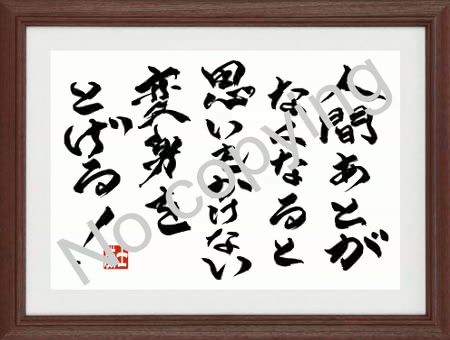 人間あとが
なくなると
思いもかけない
変身を
とげる!
No copying